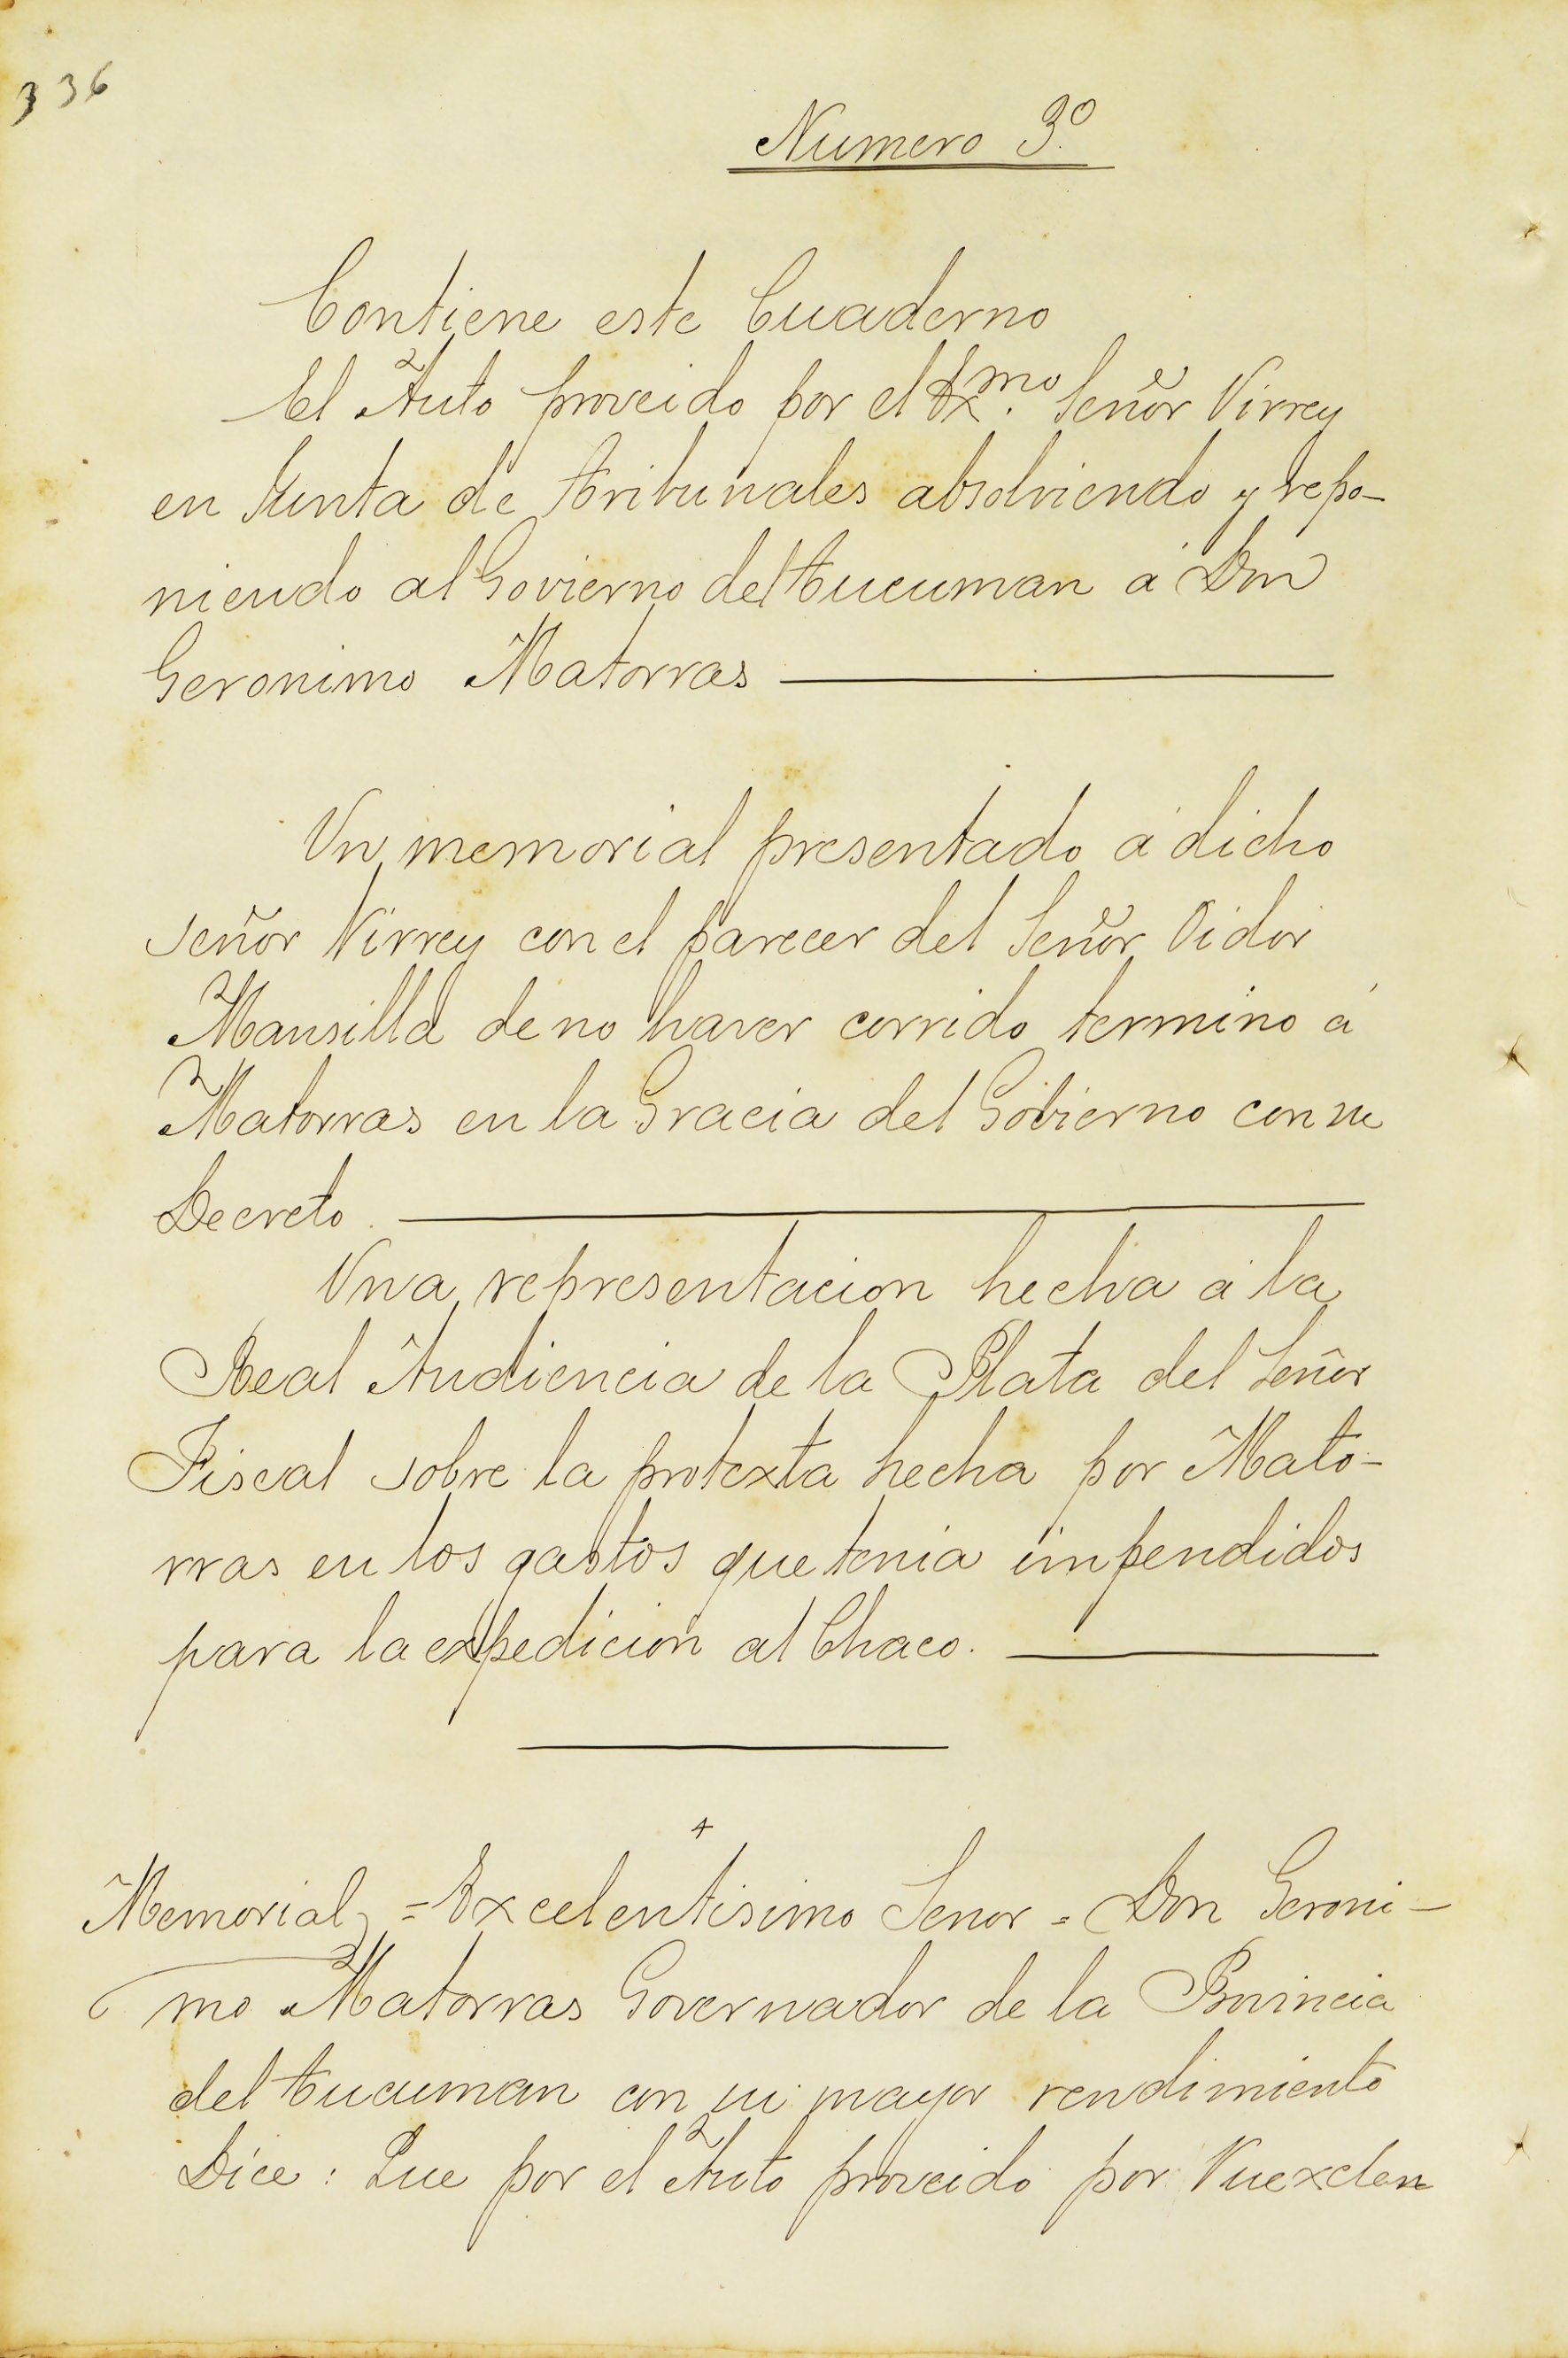 336
Numero 3.º
Contiene este Cuaderno
El Auto proveido por el Ex.mo Señor Virrey
en Junta de Tribunales absolviendo y repo-
niendo al Govierno del Tucuman á Don
Geronimo Matorras
Un memorial presentado á dicho
señor Virrey con el parecer del Señor Oidor
Mansilla de no haver corrido termino á
Matorras en la Gracia del Govierno con su
Decreto.
Una representacion hecha á la
Real Audiencia de la Plata del Señor
Fiscal sobre la protexta hecha por Mato-
rras en los gastos que tenia impendidos
para la expedicion al Chaco.
+
Memorial = Excelentisimo Senor = Don Geroni-
mo Matorras Governador de la Provincia
del Tucuman con su mayor rendimiento
Dice: Que por el Auto proveido por Vuexclen